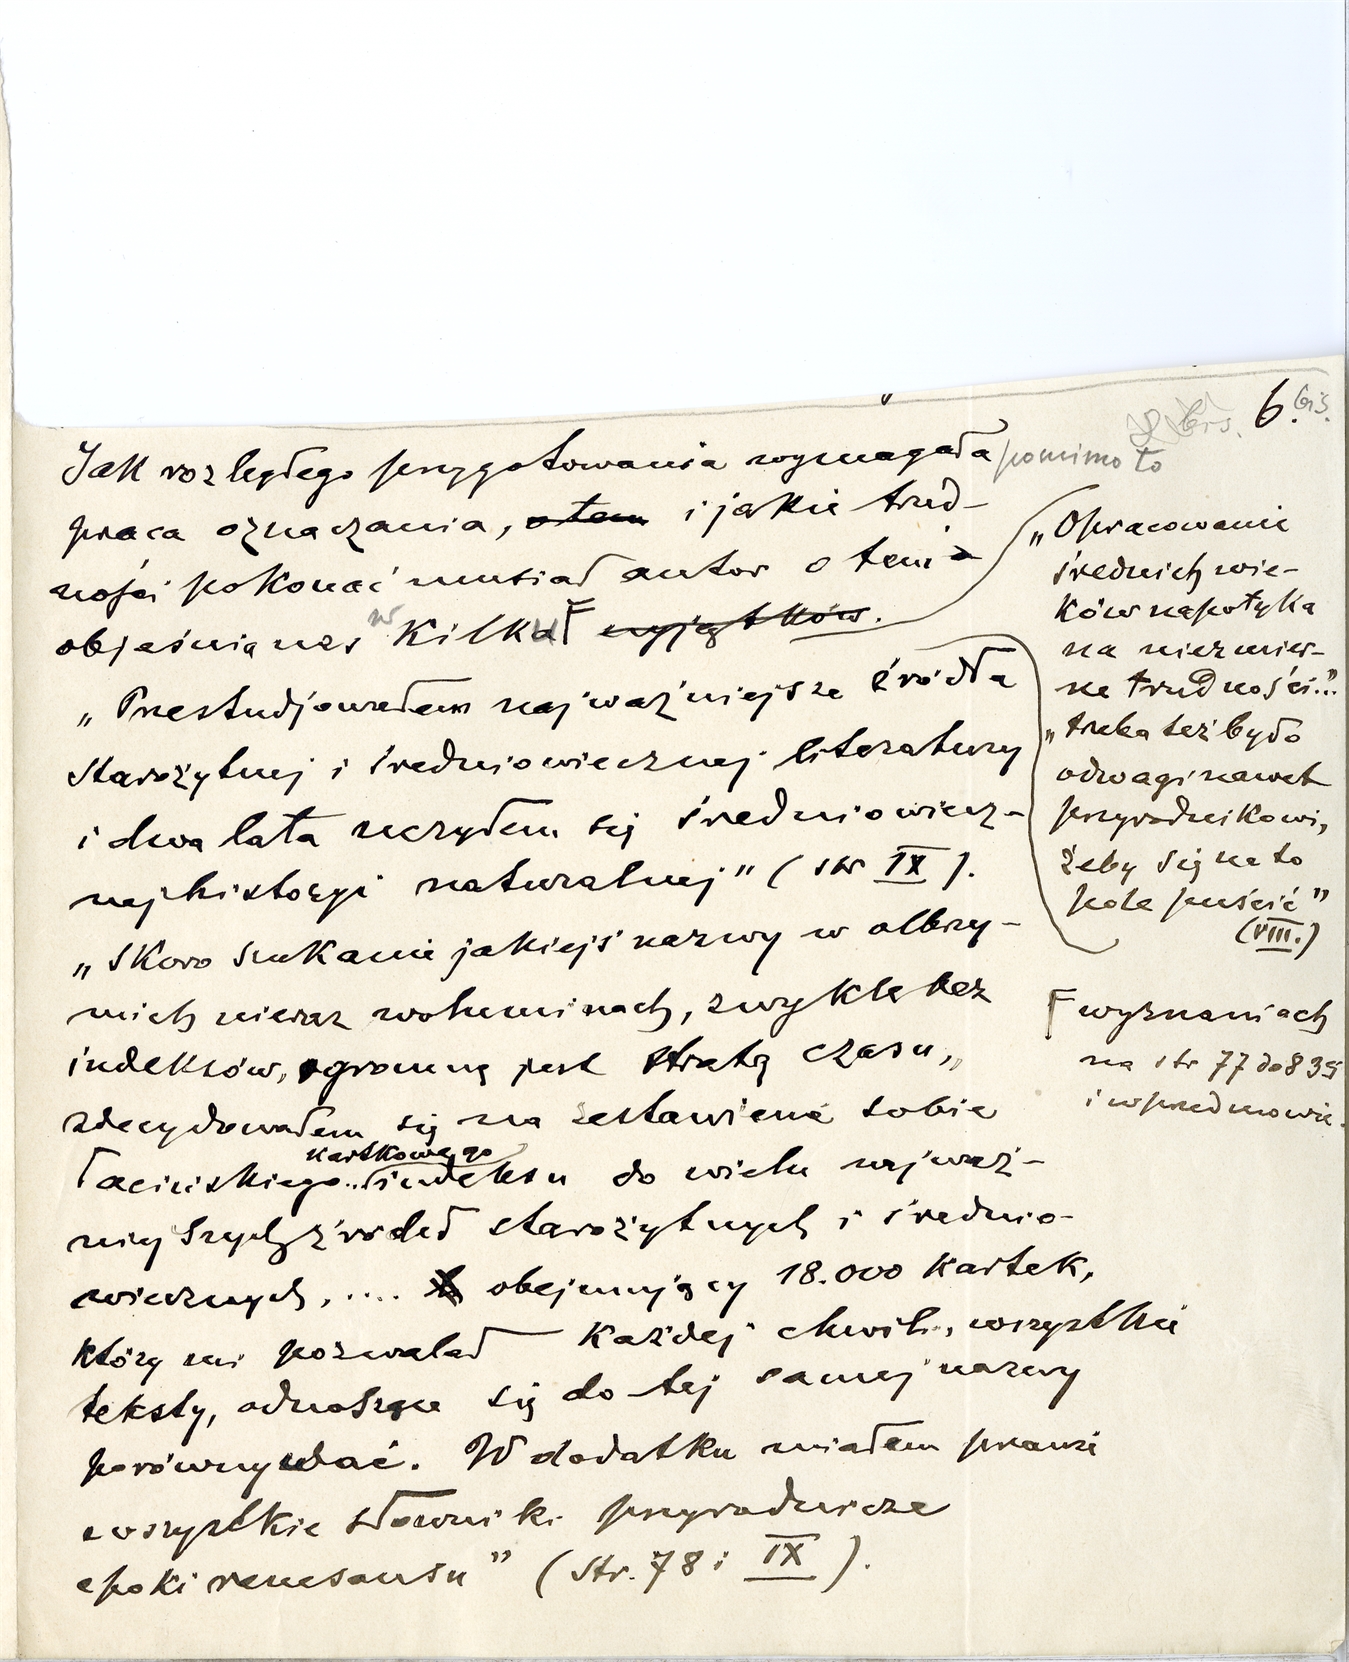 6. bis.
bis.
Jak rozległego przygotowania wymagała pomimo to
praca oznaczania, o tem i jakie trud-
ności pokonać musiał autor o tem
objaśnia nas w kilku wyjątków.
„Przestudjowałem najważniejsze źródła
starożytnej i średniowiecznej literatury
i dwa lata uczyłem się średniowiecz-
nej historyi naturalnej" (str IX).
„Skoro szukanie jakiejś nazwy w olbrzy-
mich nieraz woluminach, zwykle bez
indeksów, ogromną jest stratą czasu,
zdecydowałem się na zestawienie sobie
kartkowego
łacińskiego.. indeksu do wielu najważ-
niejszych źródeł starożytnych i średnio-
wiecznych, .... obejmujący 18.000 kartek,
który mi pozwalał każdej chwili, wszystkie
teksty, odnoszące się do tej samej nazwy
porównywać. W dodatku miałem prawie
wszystkie słowniki przyrodnicze
epoki renesansu" (str. 78 i IX).
„Opracowanie
średnich wie-
ków napotyka
na niezmier-
ne trudności..."
„trzeba też było
odwagi nawet
przyrodnikowi,
żeby się na to
pole puścić"
(VIII.)
wyznaniach
na str 77 do 83
i w przedmowie.